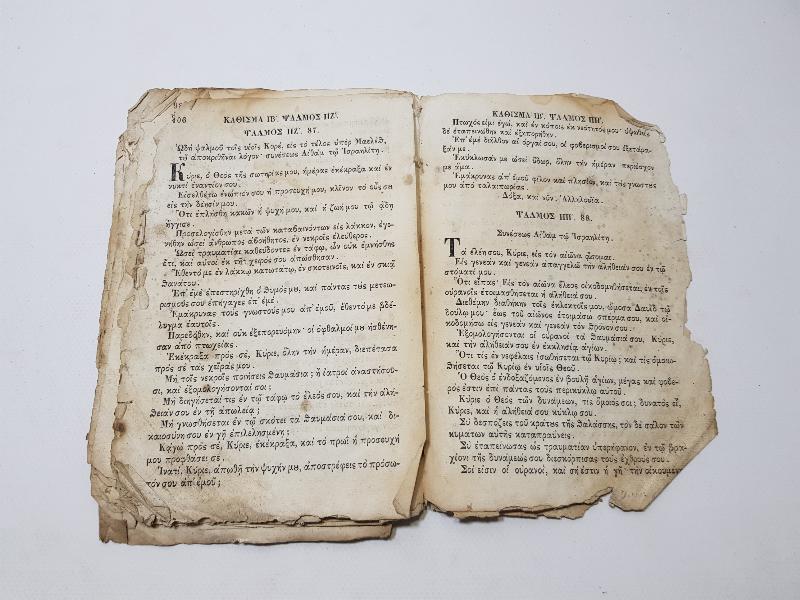 106
ΚΑΘΙΣΜΑ ΙΒ'. ΨΑΛΜΟΣ ΠΖ'.
ΨΑΛΜΟΣ ΠΖ'. 87.
Ὠδὴ ψαλμοῦ τοῖς υἱοῖς Κορέ, εἰς τὸ τέλος ὑπὲρ Μαελὲθ,
τῷ ἀποκριθῆναι λόγον· συνέσεως Αἰθὰμ τῷ Ἰσραηλίτῃ.
Κύριε, ὁ Θεὸς τῆς σωτηρίας μου, ἡμέρας ἐκέκραξα καὶ ἐν
νυκτὶ ἐναντίον σου.
Εἰσελθέτω ἐνώπιόν σου ἡ προσευχή μου, κλῖνον τὸ οὖς σου
εἰς τὴν δέησίν μου.
Ὅτι ἐπλήσθη κακῶν ἡ ψυχή μου, καὶ ἡ ζωή μου τῷ ᾅδῃ
ἤγγισε.
Προσελογίσθην μετὰ τῶν καταβαινόντων εἰς λάκκον, ἐγε-
νήθην ὡσεὶ ἄνθρωπος ἀβοήθητος, ἐν νεκροῖς ἐλεύθερος.
Ὡσεὶ τραυματίαι καθεύδοντες ἐν τάφῳ, ὧν οὐκ ἐμνήσθης
ἔτι, καὶ αὐτοὶ ἐκ τῆς χειρός σου ἀπώσθησαν.
Ἔθεντό με ἐν λάκκῳ κατωτάτῳ, ἐν σκοτεινοῖς, καὶ ἐν σκιᾷ
θανάτου.
Ἐπ' ἐμὲ ἐπεστηρίχθη ὁ θυμός μου, καὶ πάντας τοὺς μετεω-
ρισμούς σου ἐπήγαγες ἐπ' ἐμέ.
Ἐμάκρυνας τοὺς γνωστούς μου ἀπ' ἐμοῦ, ἔθεντό με βδέ-
λυγμα ἑαυτοῖς.
Παρεδόθην, καὶ οὐκ ἐξεπορευόμην· οἱ ὀφθαλμοί μου ἠσθένη-
σαν ἀπὸ πτωχείας.
Ἐκέκραξα πρός σὲ, Κύριε, ὅλην τὴν ἡμέραν, διεπέτασα
πρὸς σὲ τὰς χεῖράς μου.
Μὴ τοῖς νεκροῖς ποιήσεις θαυμάσια; ἢ ἰατροὶ ἀναστήσου-
σι, καὶ ἐξομολογήσονταί σοι;
Μὴ διηγήσεταί τις ἐν τῷ τάφῳ τὸ ἔλεός σου, καὶ τὴν ἀλή-
θειάν σου ἐν τῇ ἀπωλείᾳ;
Μὴ γνωσθήσεται ἐν τῷ σκότει τὰ θαυμάσιά σου, καὶ δι-
καιοσύνη σου ἐν γῇ ἐπιλελησμένῃ;
Κᾀγὼ πρός σὲ, Κύριε, ἐκέκραξα, καὶ τὸ πρωῒ ἡ προσευχή
μου προφθάσει σε.
Ἱνατί, Κύριε, ἀπωθῇ τὴν ψυχήν μου, ἀποστρέφεις τὸ πρόσω-
πόν σου ἀπ' ἐμοῦ;
ΚΑΘΙΣΜΑ ΙΒ'. ΨΑΛΜΟΣ ΠΗ'.
Πτωχός εἰμι ἐγώ, καὶ ἐν κόποις ἐκ νεότητός μου· ὑψωθεὶς
δὲ ἐταπεινώθην καὶ ἐξηπορήθην.
Ἐπ' ἐμὲ διῆλθον αἱ ὀργαί σου, οἱ φοβερισμοί σου ἐξετάρα-
ξάν με.
Ἐκύκλωσάν με ὡσεὶ ὕδωρ, ὅλην τὴν ἡμέραν περιέσχον
με ἅμα.
Ἐμάκρυνας ἀπ' ἐμοῦ φίλον καὶ πλησίον, καὶ τοὺς γνωστούς
μου ἀπὸ ταλαιπωρίας.
Δόξα, καὶ νῦν. Ἀλληλούϊα.
ΨΑΛΜΟΣ ΠΗ'. 88.
Συνέσεως Αἰθὰμ τῷ Ἰσραηλίτῃ.
Τὰ ἐλέη σου, Κύριε, εἰς τὸν αἰῶνα ᾄσομαι.
Εἰς γενεὰν καὶ γενεὰν ἀπαγγελῶ τὴν ἀλήθειάν σου ἐν τῷ
στόματί μου.
Ὅτι εἶπας· Εἰς τὸν αἰῶνα ἔλεος οἰκοδομηθήσεται, ἐν τοῖς
οὐρανοῖς ἑτοιμασθήσεται ἡ ἀλήθειά σου.
Διεθέμην διαθήκην τοῖς ἐκλεκτοῖς μου, ὤμοσα Δαυῒδ τῷ
δούλῳ μου· ἕως τοῦ αἰῶνος ἑτοιμάσω τὸ σπέρμα σου, καὶ οἰ-
κοδομήσω εἰς γενεὰν καὶ γενεὰν τὸν θρόνον σου.
Ἐξομολογήσονται οἱ οὐρανοὶ τὰ θαυμάσιά σου, Κύριε,
καὶ τὴν ἀλήθειάν σου ἐν ἐκκλησίᾳ ἁγίων.
Ὅτι τίς ἐν νεφέλαις ἰσωθήσεται τῷ Κυρίῳ; καὶ τίς ὁμοιω-
θήσεται τῷ Κυρίῳ ἐν υἱοῖς Θεοῦ.
Ὁ Θεὸς ὁ ἐνδοξαζόμενος ἐν βουλῇ ἁγίων, μέγας καὶ φοβε-
ρός ἐστιν ἐπὶ πάντας τοὺς περικύκλῳ αὐτοῦ.
Κύριε ὁ Θεὸς τῶν δυνάμεων, τίς ὅμοιός σοι; δυνατὸς εἶ,
Κύριε, καὶ ἡ ἀλήθειά σου κύκλῳ σου.
Σὺ δεσπόζεις τοῦ κράτους τῆς θαλάσσης, τὸν δὲ σάλον τῶν
κυμάτων αὐτῆς καταπραΰνεις.
Σὺ ἐταπείνωσας ὡς τραυματίαν ὑπερήφανον, ἐν τῷ βρα-
χίονι τῆς δυνάμεώς σου διεσκόρπισας τοὺς ἐχθρούς σου.
Σοί εἰσιν οἱ οὐρανοί, καὶ σή ἐστιν ἡ γῆ· τὴν οἰκουμέν